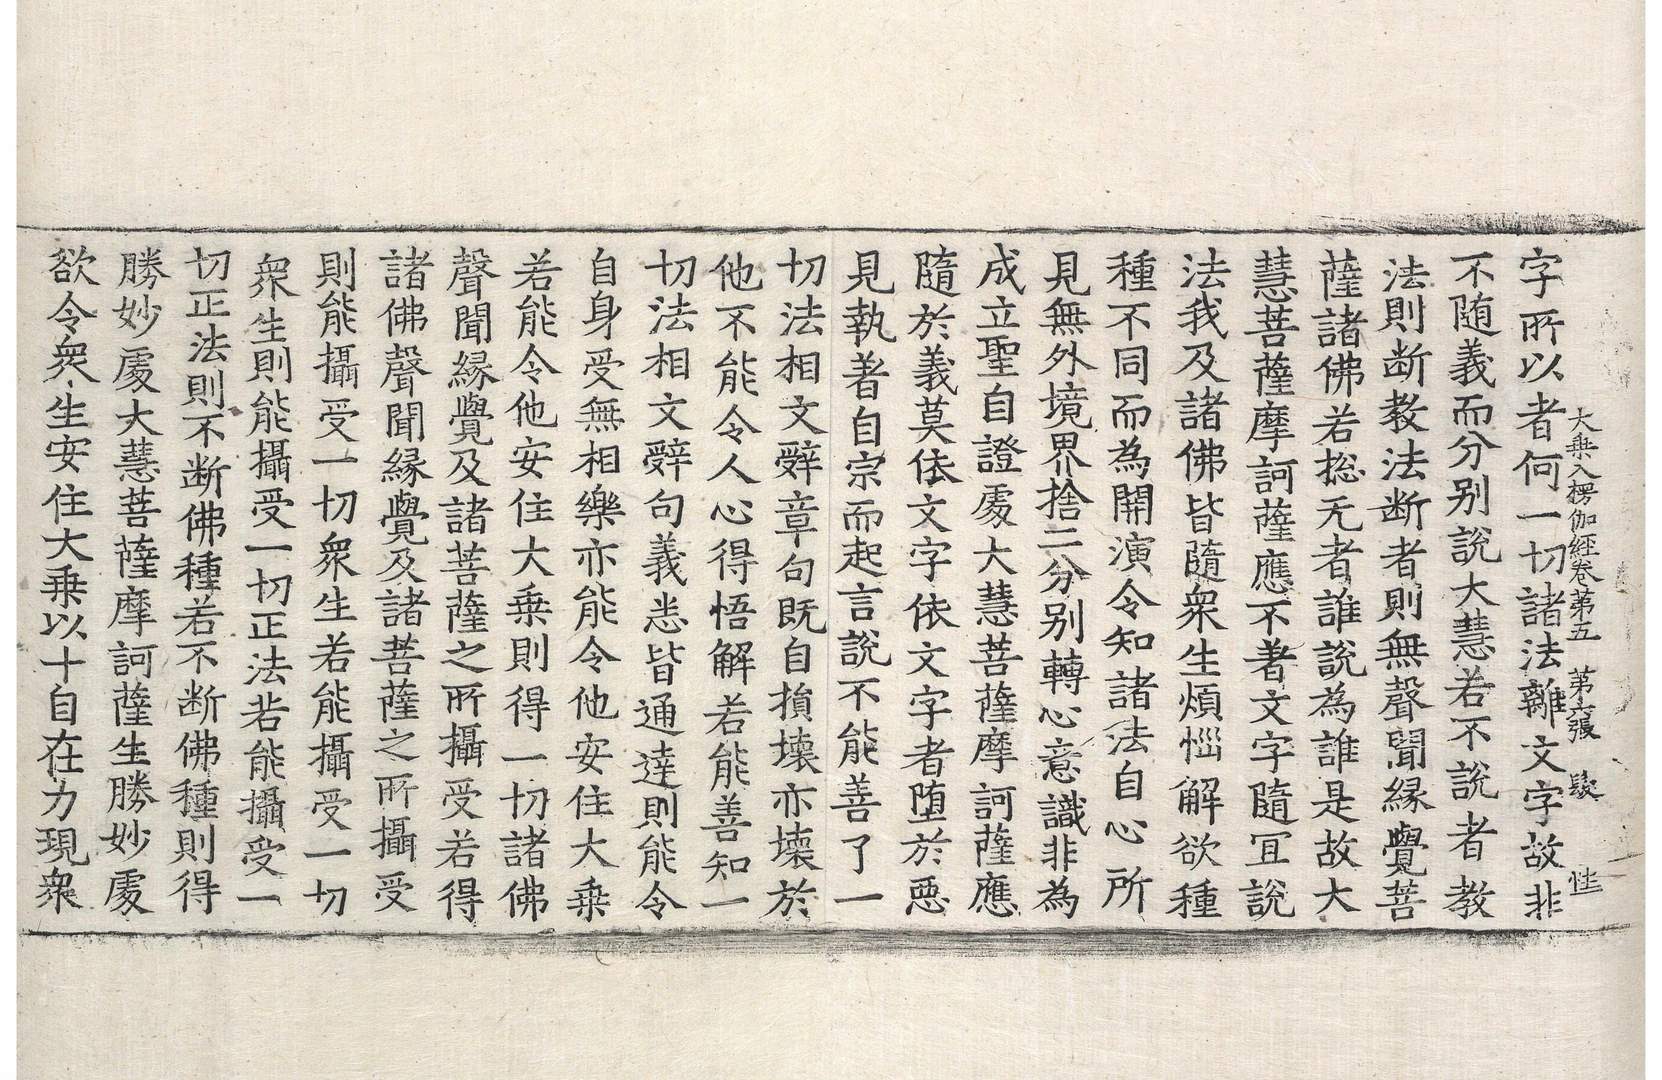 大乗入楞伽経卷第五 第六張
字所以者何一切諸法離文字故非
不随義而分別說大慧若不說者教
法則断教法断者則無聲聞縁覺菩
薩諸佛若捴无者誰說為誰是故大
慧菩薩摩訶薩應不著文字隨宜說
法我及諸佛皆隨衆生煩惱解欲種
種不同而為開演令知諸法自心所
見無外境界捨二分别轉心意識非為
成立聖自證處大慧菩薩摩訶薩應
隨於義莫依文字依文字者堕於惡
見執著自宗而起言說不能善了一
切法相文辭章句既自損壞亦壞於
他不能令人心得悟解若能善知一
切法相文辭句義悉皆通達則能令
自身受無相樂亦能令他安住大乗
若能令他安住大乗則得一切諸佛
聲聞縁覺及諸菩薩之所攝受若得
諸佛聲聞縁覺及諸菩薩之所攝受
則能攝受一切衆生若能攝受一切
衆生則能攝受一切正法若能攝受一
切正法則不断佛種若不断佛種則得
勝妙處大慧菩薩摩訶薩生勝妙處
欲令衆生安住大乗以十自在力現衆